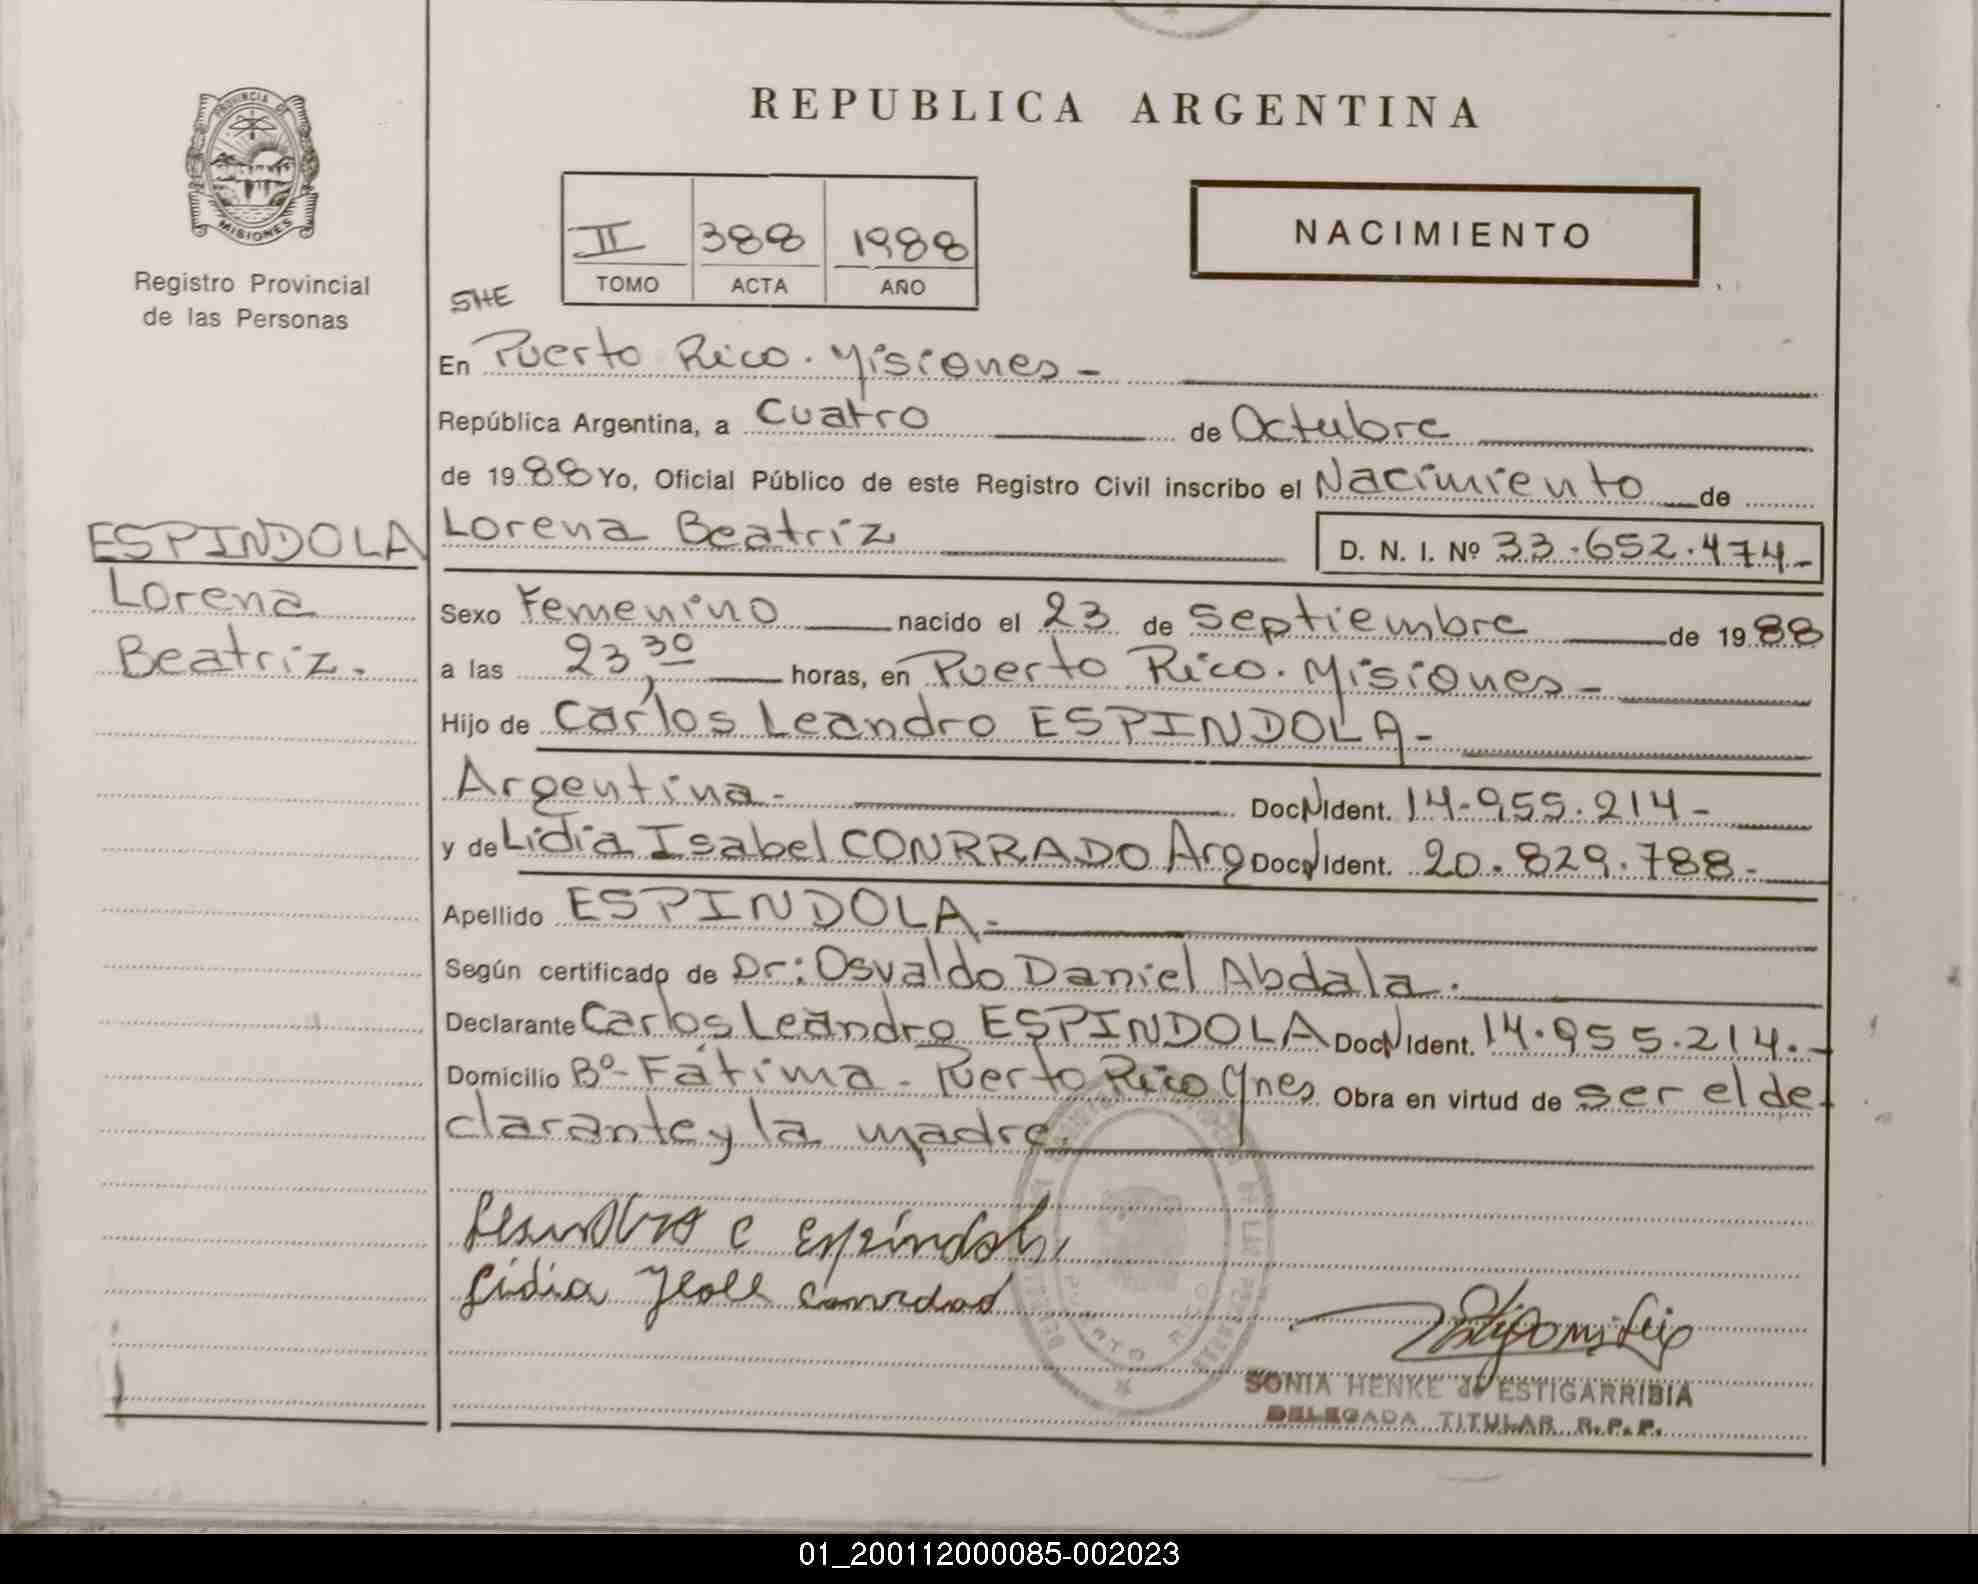 REPUBLICA ARGENTINA
PROVINCIA DE
MISIONES
Registro Provincial
de las Personas
II 388 1988
TOMO ACTA AÑO
NACIMIENTO
SHE
En Puerto Rico. Misiones -
República Argentina, a Cuatro de Octubre
de 1988 Yo, Oficial Público de este Registro Civil inscribo el Nacimiento de
ESPINDOLA
Lorena
Beatriz.
Lorena Beatriz D. N. I. Nº 33.652.474-
Sexo Femenino nacido el 23 de Septiembre de 1988
a las 23,30 horas, en Puerto Rico. Misiones -
Hijo de Carlos Leandro ESPINDOLA -
Argentina - DocNIdent. 14.955.214 -
y de Lidia Isabel CONRRADO Arg DocNIdent. 20.829.788 -
Apellido ESPINDOLA -
Según certificado de Dr: Osvaldo Daniel Abdala.
Declarante Carlos Leandro ESPINDOLA DocNIdent. 14.955.214. -
Domicilio Bº- Fátima - Puerto Rico Mnes Obra en virtud de ser el de-
clarante y la madre.
C Espíndola
Lidia Conrrado
PUERTO RICO
SONIA HENKE de ESTIGARRIBIA
DELEGADA TITULAR R.P.P.
01_200112000085-002023